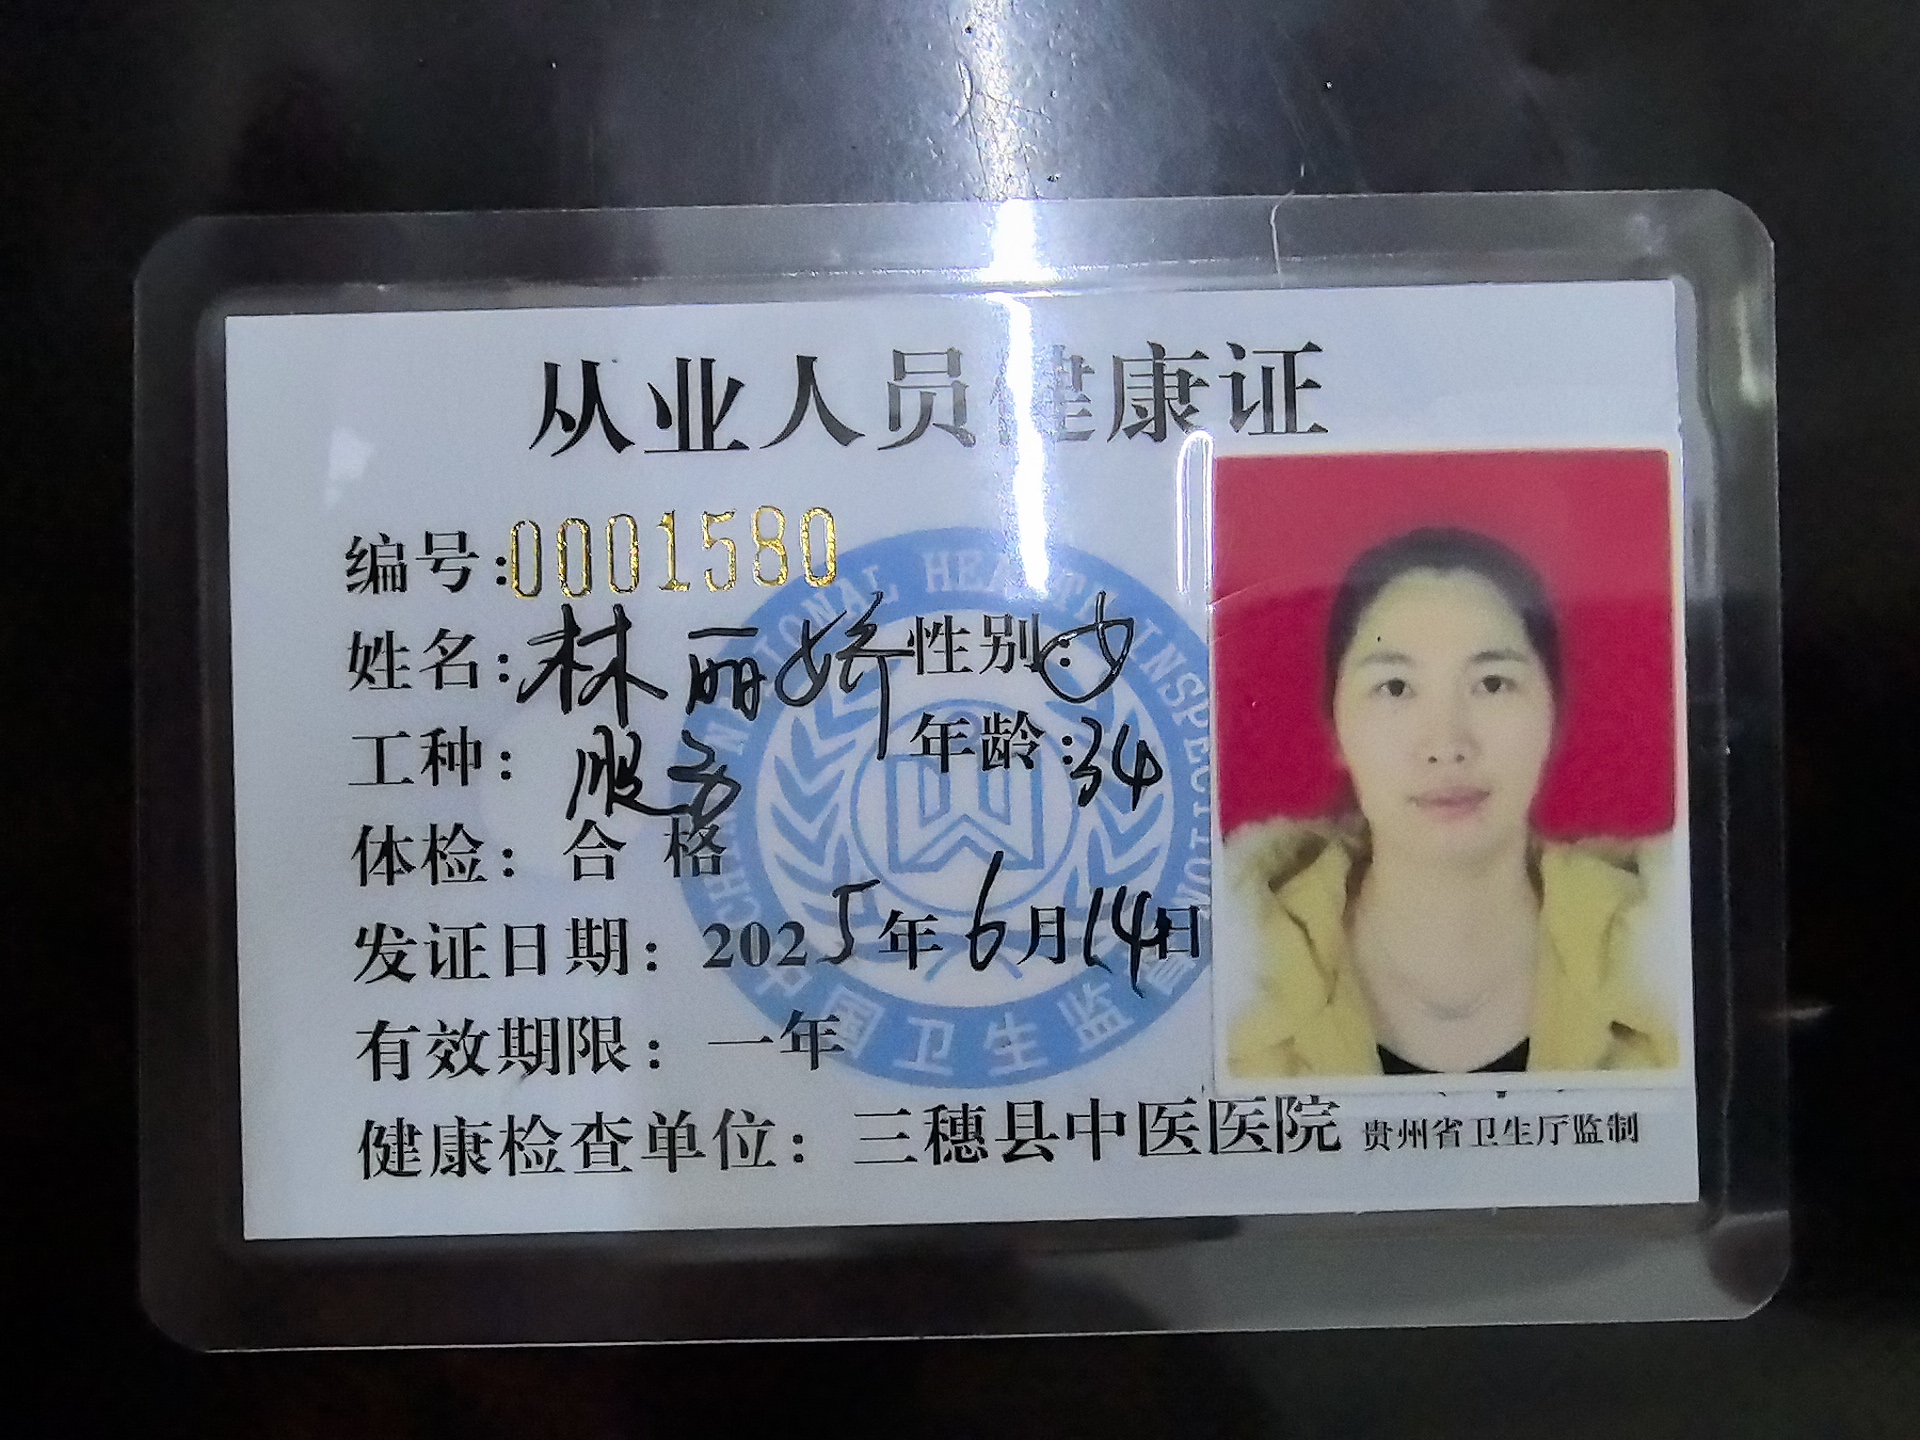 从业人员健康证
编号:0001580
姓名:林丽娇 性别:女
工种:服务 年龄:34
体检:合格
发证日期:2025年6月14日
有效期限:一年
健康检查单位:三穗县中医医院 贵州省卫生厅监制
NATIONAL HEALTH INSPECTION
中国卫生监督